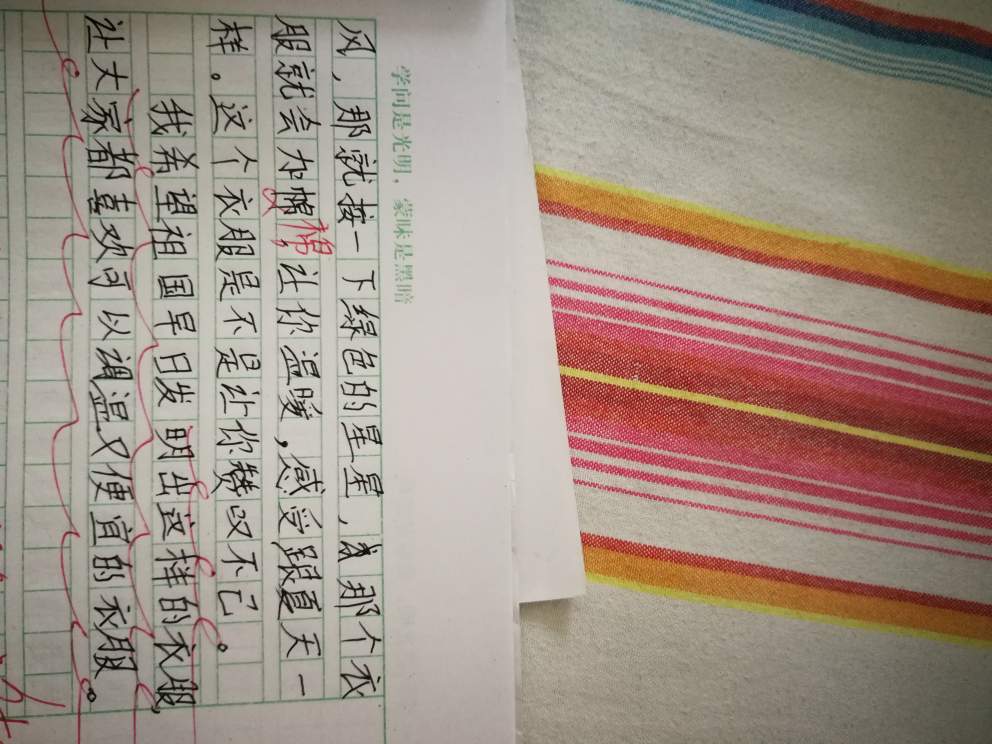 学问是光明，蒙昧是黑暗
风，那就按一下绿色的星星，那个衣
服就会加棉，让你温暖，感受跟夏天一
样。这个衣服是不是让你赞叹不已。
我希望祖国早日发明出这样的衣服，
让大家都喜欢可以调温又便宜的衣服。